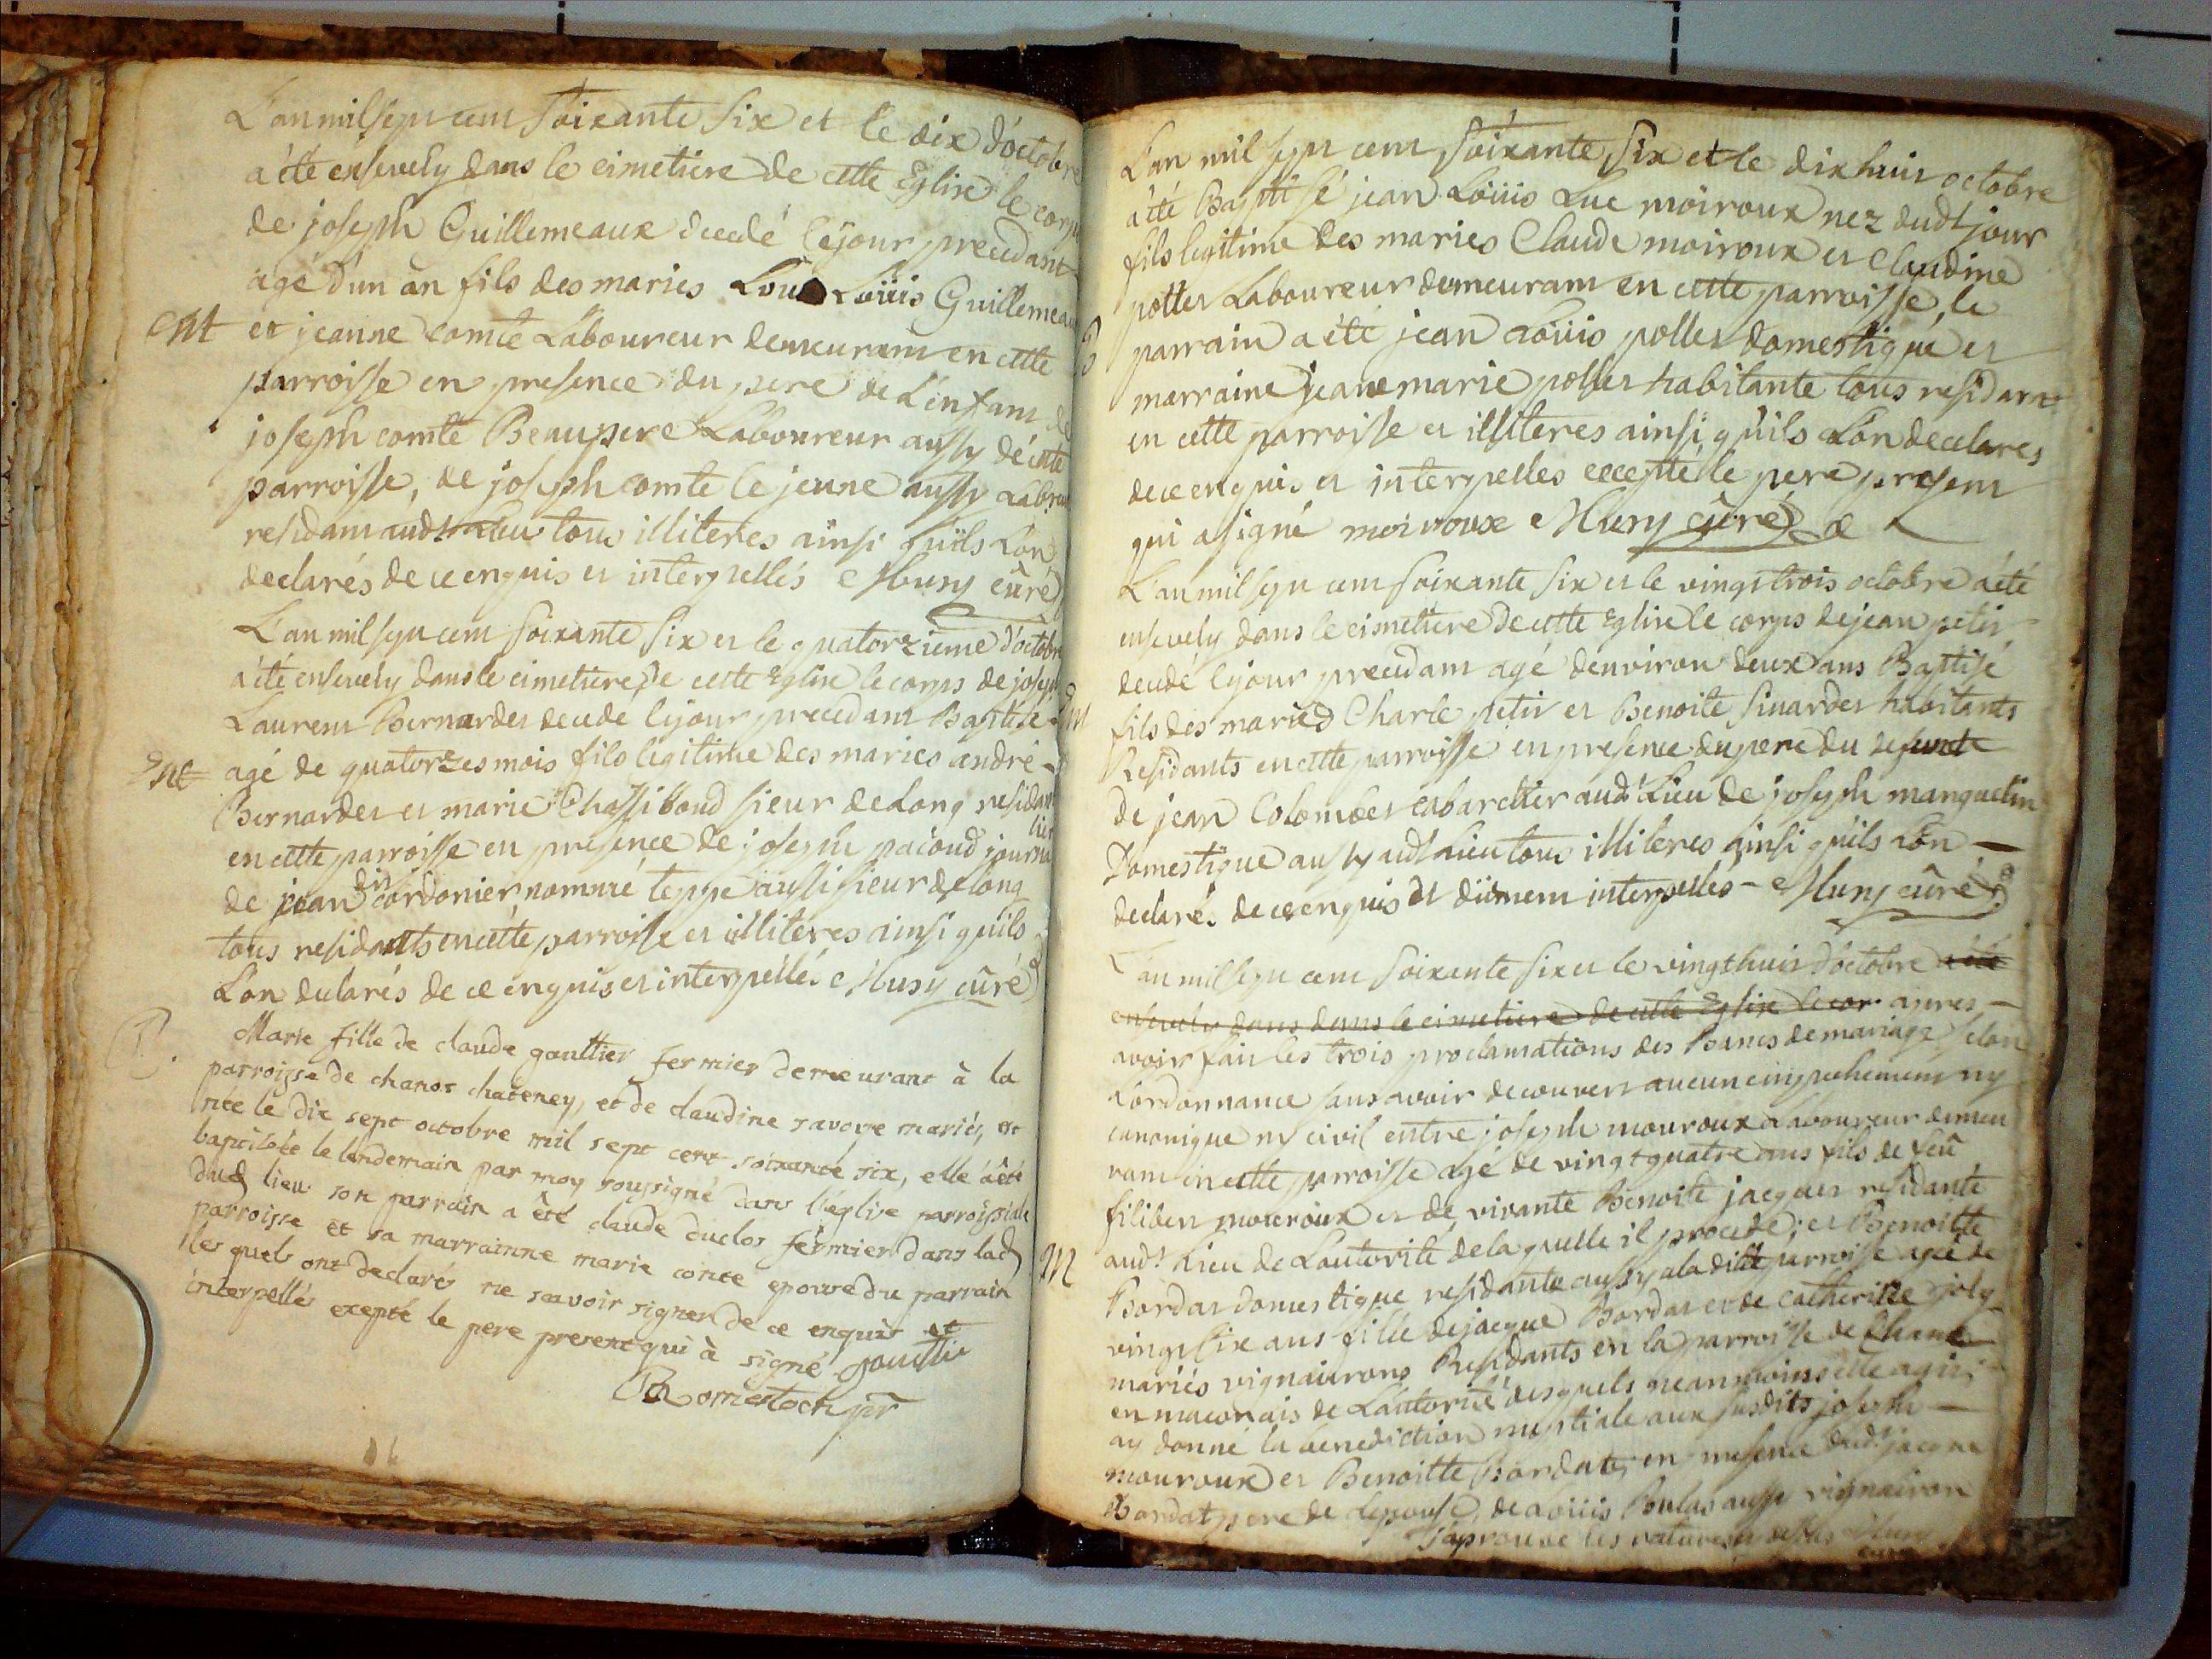 L'an mil sept cent soixante six et le dix d'octobre
a été ensevely dans le cimetiere de cette Eglise le corps
de joseph Guillemeaux decedé le jour precedant
agé d'un an fils des maries Louis Guillemeaux
Ent et jeanne comte Laboureur demeurant en cette
parroisse en presence du pere de L'enfant de
joseph comte Beaupere Laboureur aussy de cette
parroisse, de joseph comte le jeune aussy Labr
residant audt Lieu tous illiteres ainsi qu'ils L'on
declarés de ce enquis et interpellés Musy cûré
L'an mil sept cent soixante six et le quatorzieme d'octobre
a été ensevely dans le cimetiere de cette Eglise le corps de joseph
Laurent Bernardet decedé le jour precedant Baptisé
Ent agé de quatorzes mois fils legitime des maries andré
Bernardet et marie Chassiboud sieur de Long residant
en cette parroisse en presence de joseph pacoud journalier
de jean cordonier nommé teppe aussi sieur de long
tous residants en cette parroisse et illiteres ainsi qu'ils
L'on declarés de ce enquis et interpellés Musy cûré
B. Marie fille de claude gauttier fermier demeurant à la
parroisse de chanos chateney, et de claudine savoye mariés, est
née le dix sept octobre mil sept cent soixante six, elle a êté
baptisée le lendemain par moy soussigné dans l'église parroissiale
dud lieu son parrain a êté claude duclos fermier dans lad
parroisse et sa marrainne marie conte epouse du parrain
lesquels ont declarés ne scavoir signer de ce enquis et
interpellés exepté le pere present qui à signé gouttie

L'an mil sept cent soixante six et le dix huit octobre
a été Baptisé jean Loüis Luc moiroux nez dudt jour
fils legitime des maries Claude moiroux et Claudine
pollet Laboureur demeurant en cette parroisse, le
B parrain a été jean Loüis pollet domestique et
marraine jeane marie pollet habitante tous residant
en cette parroisse et illiteres ainsi qu'ils L'on declares
de ce enquis et interpelles excepté le pere present
qui a signé moiroux Musy cûré
L'an mil sept cent soixante six et le vingt trois octobre a été
ensevely dans le cimetiere de cette Eglise le corps de jean petit
decedé le jour precedant agé denviron deux ans Baptisé
Ent fils des maries Charle petit et Benoite sinardet habitants
Residants en cette parroisse en presence du pere du defunt
de jean Colombet cabarettier audt Lieu de joseph manguelin
Domestique aussy audt Lieu tous illiteres ainsi qu'ils L'on
declarés de ce enquis et düement interpellés Musy cûré
L'an mil sept cent soixante six et le vingt huit d'octobre a été
ensevely dans dans le cimetiere de cette Eglise le cor apres
avoir fait les trois proclamations des Bancs de mariage selon
L'ordonnance sans avoir decouvert aucun empechement ny
canonique ny civil entre joseph mouroux Laboureur demeu
rant en cette parroisse agé de vingt quatre ans fils de feû
filibert mouroux et de vivante Benoite jacquet residante
M audt Lieu de L'autorité de laquelle il procede; et Benoitte
Bordat domestique residante aussy a la ditte parroisse agée de
vingt six ans fille de jacque Bordat et de catherine joly
mariés vignairons Residants en la parroisse de Chane
en maconais de L'autorité desquels neanmoins elle agit;
ay donné la benediction nuptiale aux susdits joseph
mouroux et Benoitte Bordat, en presence dudt jacque
Bordat pere de L'epouse, de Loüis Boulas aussi vignairon
J'aprouve les ratures